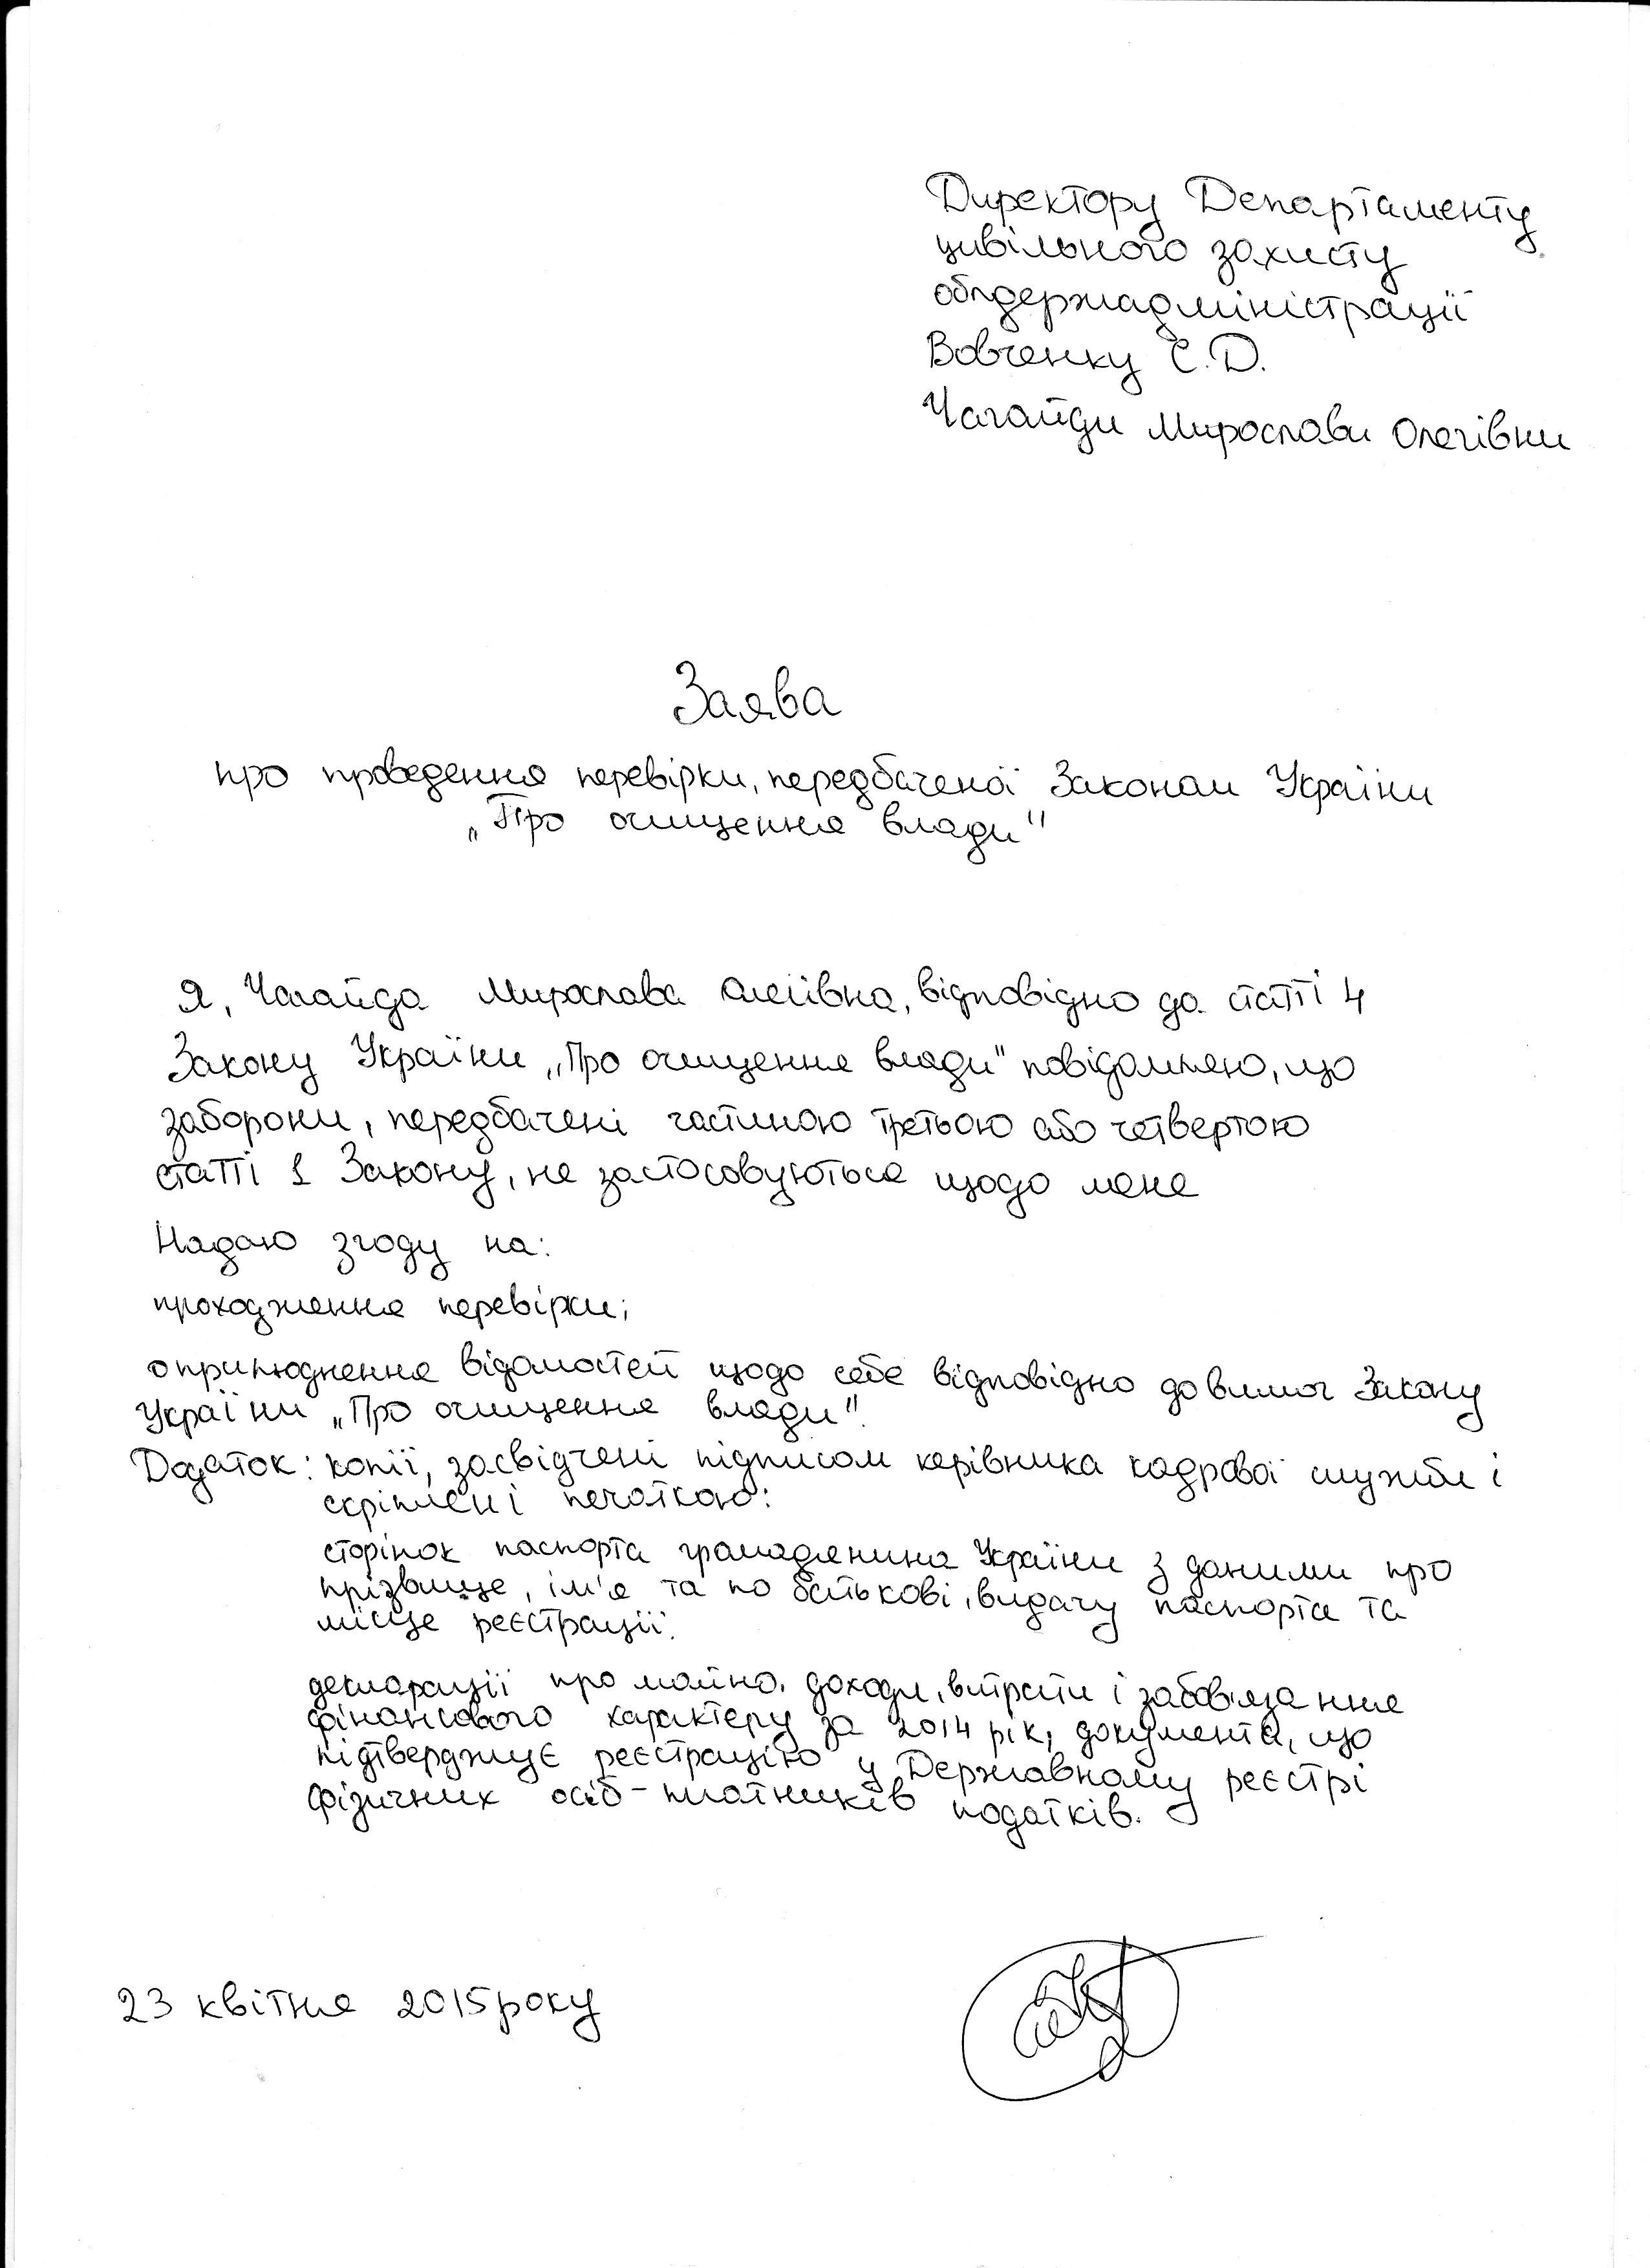 Директору Департаменту
цивільного захисту
облдержадміністрації
Вовченку Є.Д.
Чагайди Мирослави Олегівни
Заява
про проведення перевірки, передбаченої Законом України
„Про очищення влади"
Я, Чагайда Мирослава Олегівна, відповідно до статті 4
Закону України „Про очищення влади" повідомляю, що
заборони, передбачені частиною третьою або четвертою
статті 1 Закону, не застосовуються щодо мене
Надаю згоду на:
проходження перевірки;
оприлюднення відомостей щодо себе відповідно до вимог Закону
України „Про очищення влади".
Додаток: копії, засвідчені підписом керівника кадрової служби і
скріплені печаткою:
сторінок паспорта громадянина України з даними про
прізвище, ім'я та по батькові, видачу паспорта та
місце реєстрації;
декларації про майно, доходи, витрати і забов'язання
фінансового характеру за 2014 рік, документа, що
підтверджує реєстрацію у Державному реєстрі
фізичних осіб - платників податків.
23 квітня 2015 року